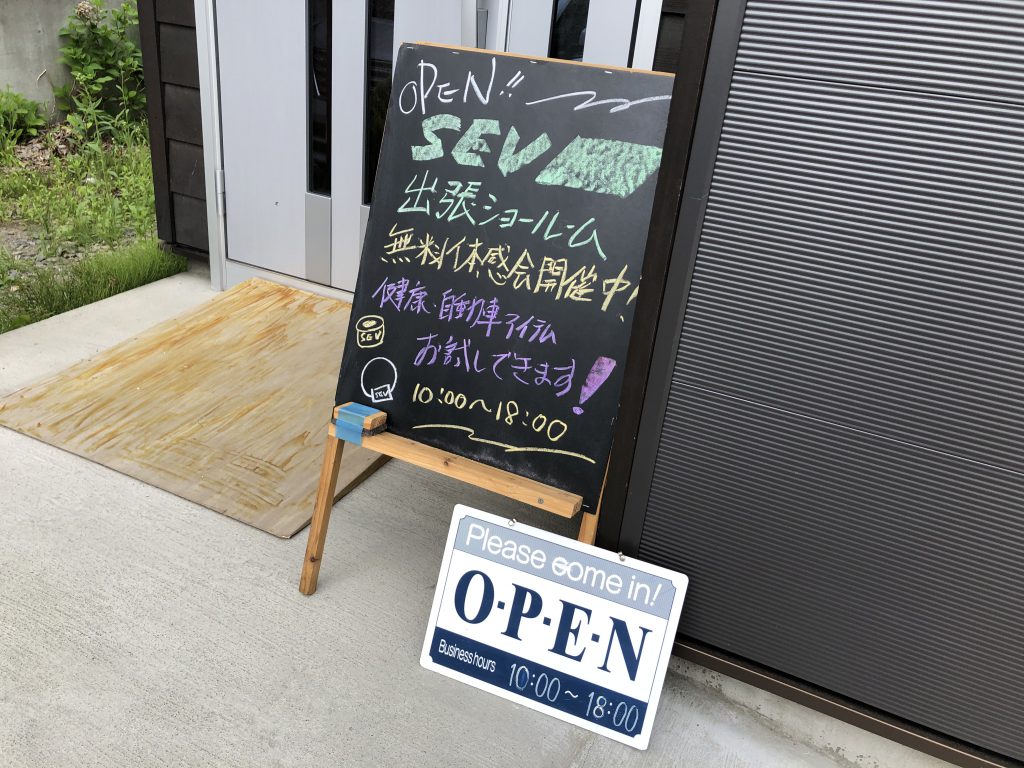 OPEN!!
SEV
出張ショールーム
無料体感会開催中!
健康・自動車アイテム
お試しできます!
SEV
SEV
10:00〜18:00
Please Come in!
O-P-E-N
Business hours 10:00〜18:00